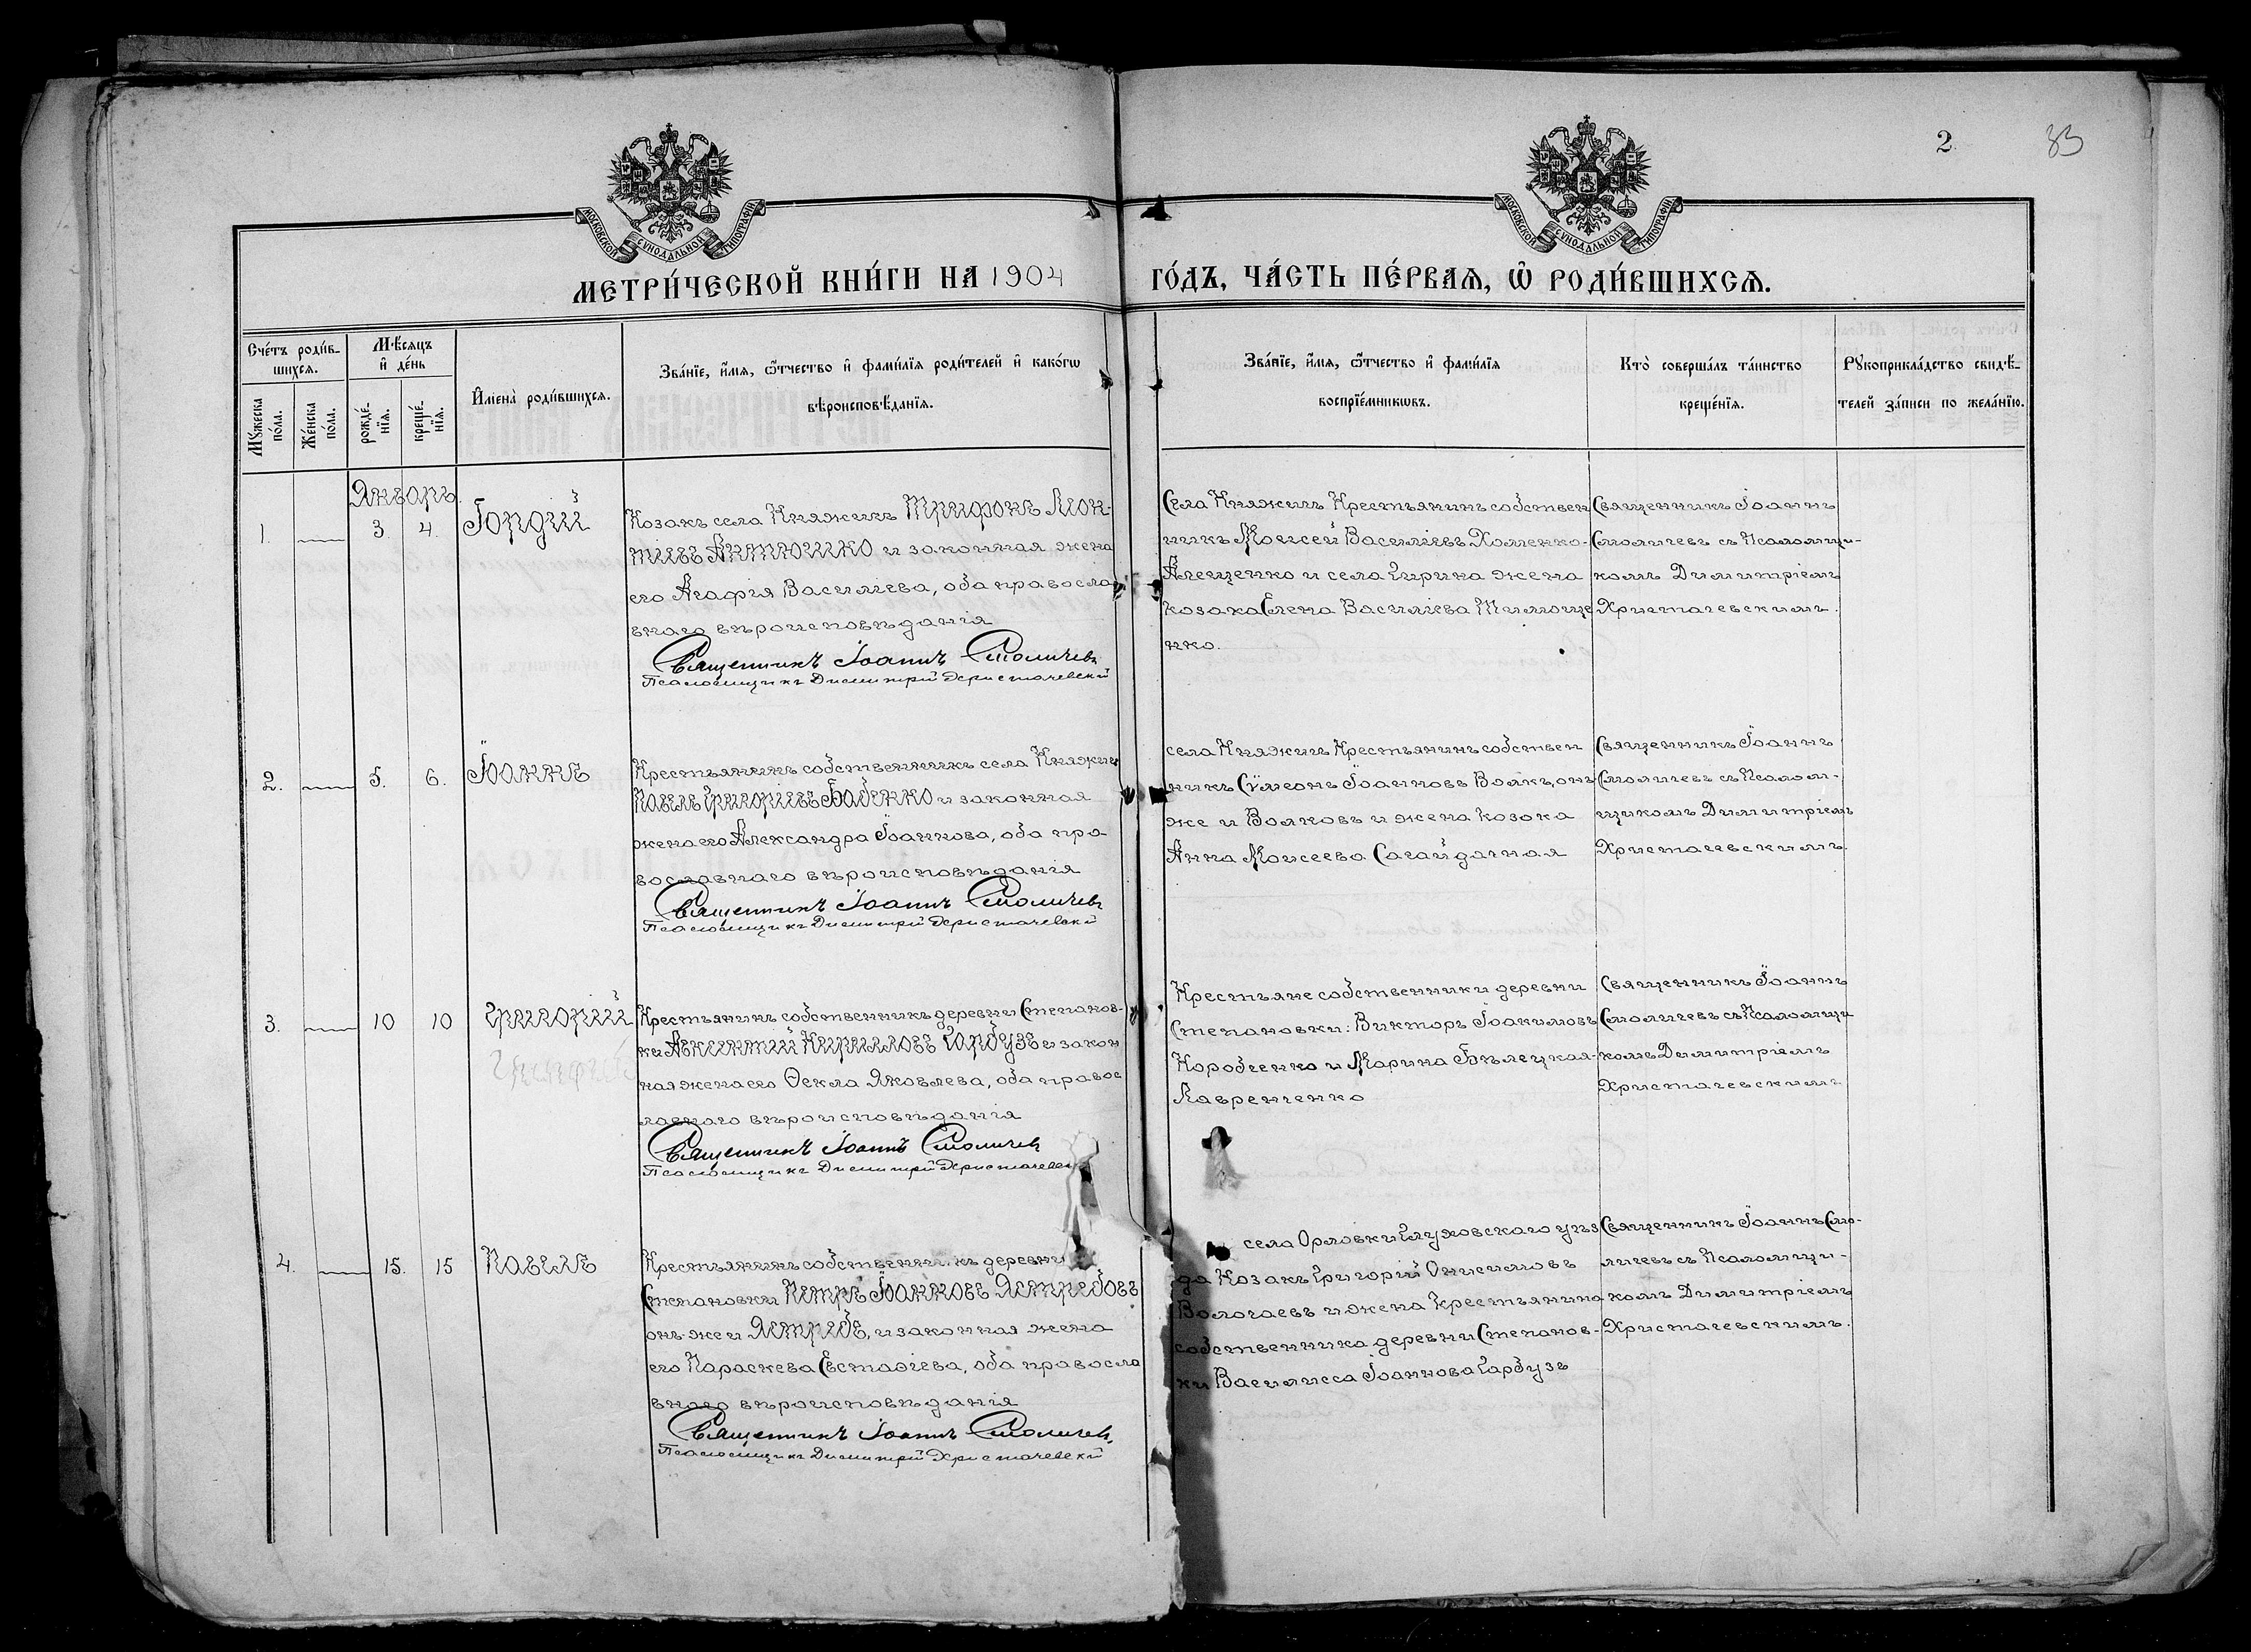 2.
33
МОСКОВСКОЙ СУНОДАЛЬНОЙ ТИПОГРАФІИ
МОСКОВСКОЙ СУНОДАЛЬНОЙ ТИПОГРАФІИ
МЕТРИ́ЧЕСКОЙ КНИ́ГИ НА 1904 ГО́ДЪ, ЧА́СТЬ ПЕ́РВАѦ, Ѡ҆ РОДИ́ВШИХСѦ.
Сче́тъ роди́в-
шихсѧ.
Мꙋ́жеска
по́ла.
Же́нска
по́ла.
Мѣ́сѧцъ
и҆ де́нь
рожде́-
нїѧ.
креще́-
нїѧ.
И҆мена̀ роди́вшихсѧ.
Зва́нїе, и҆́мѧ, ѻ҆́тчество и҆ фами́лїѧ роди́телей и҆ како́гѡ
вѣроисповѣ́данїѧ.
Зва́нїе, и҆́мѧ, ѻ҆́тчество и҆ фами́лїѧ
воспрїе́мникѡвъ.
Кто̀ соверша́лъ та́инство
креще́нїѧ.
Рꙋкоприкла́дство свидѣ́-
телей за́писи по жела́нїю.
Январь
1. — 3. 4. Гордій
Козакъ села Княжичъ Трифонъ Леон-
тіевъ Антюшко и законная жена
его Агафія Василіева, оба правосла
внаго вѣроисповѣданія
Священникъ Іоаннъ Смоличевъ
Псаломщикъ Димитрій Христачевскій
Села Княжичъ Крестьянинъ собствен
никъ Моисей Василіевъ Хоменко-
Алещенко и села Чирина жена
козака Елена Василіева Тимоще
нко.
Священникъ Іоаннъ
Смоличевъ съ Псаломщи-
комъ Димитріемъ
Христачевскимъ.
2. — 5. 6. Іоаннъ
Крестьянинъ собственникъ села Княжичъ
Павелъ Григоріевъ Бабенко и законная
жена его Александра Іоаннова, оба пра
вославнаго вѣроисповѣданія
Священникъ Іоаннъ Смоличевъ
Псаломщикъ Димитрій Христачевскій
села Княжичъ Крестьянинъ собствен
никъ Сѵмеонъ Іоанновъ Волкъ, онъ
же и Волковъ и жена козака
Анна Моисеева Сагайдачная
Священникъ Іоаннъ
Смоличевъ съ Псалом-
щикомъ Димитріемъ
Христачевскимъ.
3. — 10 10 Григорій
Крестьянинъ собственникъ деревни Степанов-
ки Авксентій Кирилловъ Гарбузъ и закон
ная жена его Ѳекла Яковлева, оба правос
лавнаго вѣроисповѣданія
Священникъ Іоаннъ Смоличевъ
Псаломщикъ Димитрій Христачевскій
Крестьяне собственники деревни
Степановки: Викторъ Іоакимовъ
Коробченко и Марина Бѣлецкая-
Лавренченко
Священникъ Іоаннъ
Смоличевъ съ Псаломщи
комъ Димитріемъ
Христачевскимъ
4. — 15. 15 Павелъ
Крестьянинъ собственникъ деревни
Степановки Петръ Іоанновъ Ястребовъ
онъ-же и Ястребъ, и законная жена
его Параскева Евстаѳіева, оба правосла
внаго вѣроисповѣданія
Священникъ Іоаннъ Смоличевъ
Псаломщикъ Димитрій Христачевскій
села Орловки Глуховскаго уѣз
да Козакъ Григорій Онисимовъ
Вологаевъ и жена крестьянина
собственника деревни Степанов-
ки Василисса Іоаннова Гарбузъ
Священникъ Іоаннъ Смо-
личевъ съ Псаломщи-
комъ Димитріемъ
Христачевскимъ.